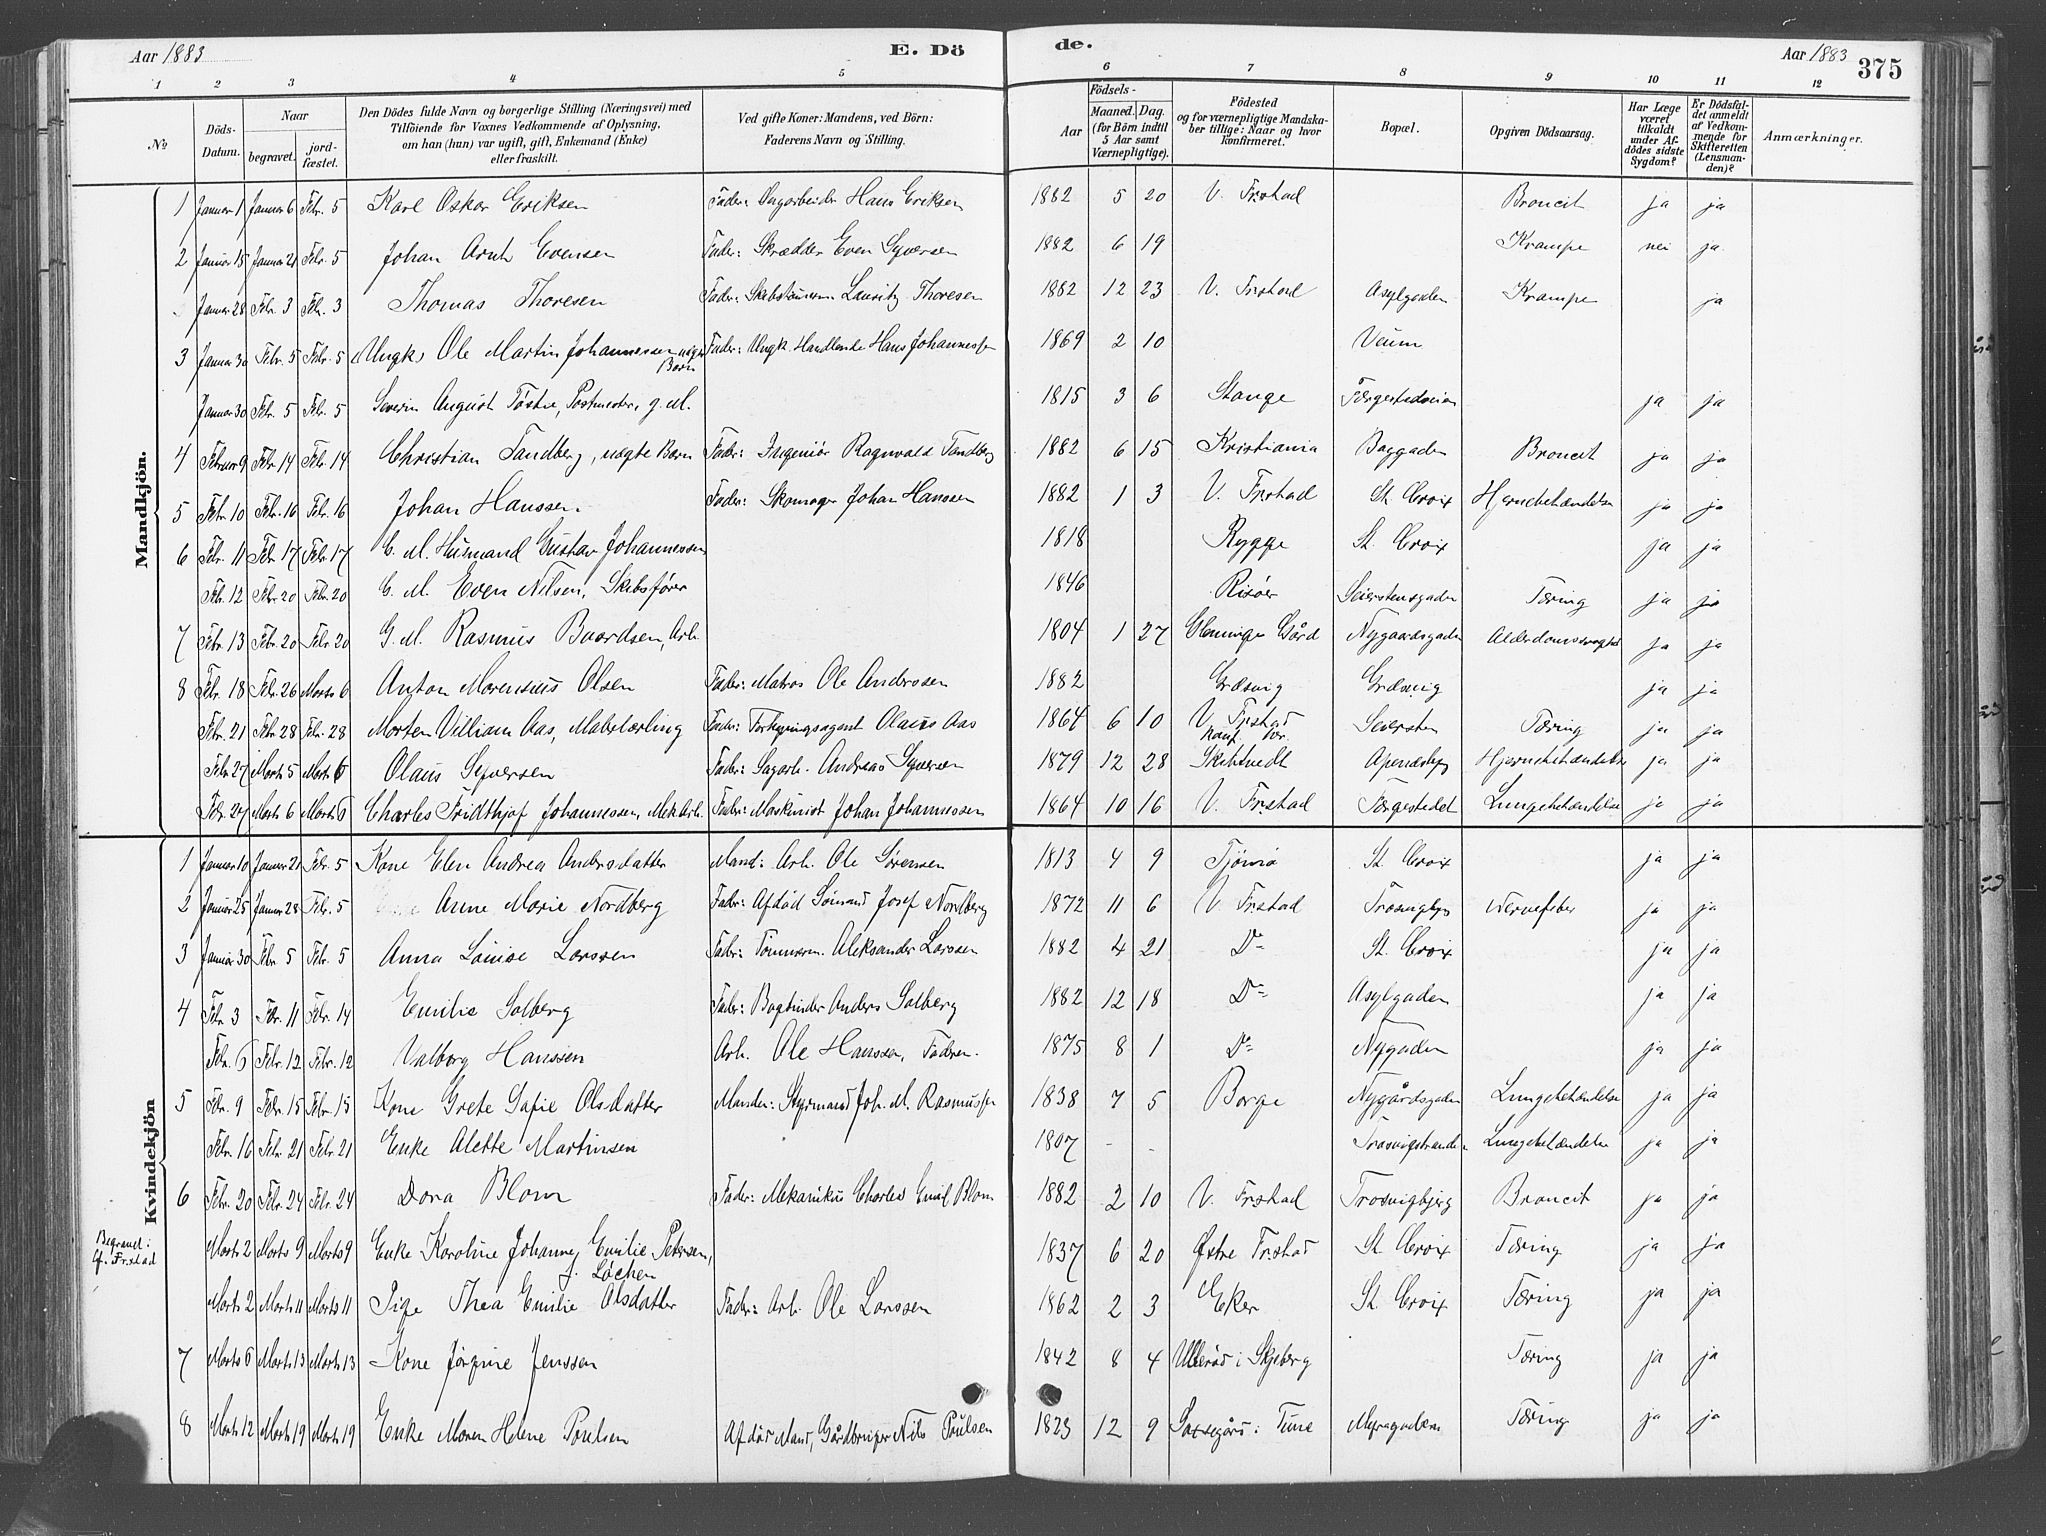 Aar 1883 E. Dö de. Aar 1883 375
1 2 3 4 5 6 7 8 9 10 11 12
№ Döds-Datum. Naar begravet. jordfæstet. Den Dödes fulde Navn og borgerlige Stilling (Næringsvei) med Tilföiende for Voxnes Vedkommende af Oplysning, om han (hun) var ugift, gift, Enkemand (Enke) eller fraskilt. Ved gifte Koner: Mandens, ved Börn: Faderens Navn og Stilling. Födsels- Aar Maaned. Dag. (for Börn indtil 5 Aar samt Værnepligtige). Födested og for værnepligtige Mandskaber tillige: Naar og hvor konfirmeret. Bopæl. Opgiven Dödsaarsag. Har Læge været tilkaldt under Afdödes sidste Sygdom? Er Dödsfaldet anmeldt af Vedkommende for Skifteretten (Lensmanden)? Anmærkninger.
Mandkjön.
1 Januar 1 Januar 6 Febr. 5 Karl Oskar Eriksen Fader: Dagarbeider Hans Eriksen 1882 5 20 V. Fr.stad Broncit ja ja
2 Januar 15 Januar 21 Febr. 5 Johan Arnt Evensen Fader: Skrædder Even Syversen 1882 6 19 Krampe nei ja
Januar 28 Febr. 3 Febr. 3 Thomas Thoresen Fader: Skibstømerm. Lauritz Thoresen 1882 12 23 V. Fr.stad Asylgaden Krampe ja
3 Januar 30 Febr. 5 Febr. 5 Ungk. Ole Martin Johannessen uægte Barn Fader: Ungk. Handlende Hans Johannessen 1869 2 10 Veum
Januar 30 Febr. 5 Febr. 5 Severin August Tøstie, Postmester, g. M. 1815 3 6 Stange Færgestedveien ja ja
4 Februar 9 Febr. 14 Febr. 14 Christian Tandberg, uægte Barn Fader: Ingeniør Ragnvald Tandberg 1882 6 15 Kristiania Baggaden Broncit ja ja
5 Febr. 10 Febr. 16 Febr. 16 Johan Hanssen. Fader: Skomager Johan Hanssen 1882 1 3 V. Fr.stad St. Croix Hjernebetændelse ja ja
6 Febr. 11 Febr. 17 Febr. 17 E. M. Husmand Gustav Johannessen 1818 Rygge St. Croix ja ja
Febr. 12 Febr. 20 Febr. 20 E. M. Even Nilsen, Skibsfører 1846 Risøer Seierstensgaden Tæring ja ja
7 Febr. 13 Febr. 20 Febr. 20 G. M. Rasmus Baardsen, Arb. 1804 1 27 Glemminge Gård Nygaardsgaden Alderdomssvaghed ja ja
8 Febr. 18 Febr. 26 Marts 6 Anton Marensius Olsen Fader: Matros Ole Andersen 1882 Græsvig Græsvig ja ja
Febr. 21 Febr. 28 Febr. 28 Morten Villiam Aas, Malelærling Fader: Forhyringsagent Olaus Aas 1864 6 10 V. Fr.stad Seiersten Tæring ja ja
Febr. 27 Marts 5 Marts 6 Olaus Syversen Fader: Sagarb. Andreas Syversen 1879 12 28 Skibtvedt Apenesby Hjernebetændelse ja ja
Febr. 27 Marts 6 Marts 6 Charles Fridthjof Johannessen, Mek. Arb. Fader: Maskinist Johan Johannessen 1864 10 16 V. Fr.stad Færgestedet Lungebetændelse ja ja
Kvindekjön
1 Januar 10 Januar 21 Febr. 5 Kone Elen Andrea Andersdatter Mand: Arb. Ole Sørensen 1813 4 9 Tjømø St. Croix ja ja
2 Januar 25 Januar 28 Febr. 5 Anne Marie Nordberg Fader: Afdød Sømand Josef Nordberg 1872 11 6 V. Fr.stad Trosvigby Nervefeber ja ja
3 Januar 30 Febr. 5 Febr. 5 Anna Louise Larssen Fader: Tømmerm. Aleksander Larssen 1882 4 21 Do St. Croix ja ja
4 Febr. 3 Febr. 11 Febr. 14 Emilie Solberg Fader: Bogbinder Anders Solberg 1882 12 18 Do Asylgaden ja ja
Febr. 6 Febr. 12 Febr. 12 Valborg Hanssen Arb. Ole Hanssen, Faderen. 1875 8 1 Do Nygaden ja ja
5 Febr. 9 Febr. 15 Febr. 15 Kone Grete Sofie Olsdatter Manden: Styrmand Joh. M. Rasmussen 1838 7 5 Borge Nygårdsgaden Lungebetændelse ja ja
Febr. 16 Febr. 21 Febr. 21 Enke Alette Martinsen 1807 - - Trosvigstranden Lungebetændelse ja ja
6 Febr. 20 Febr. 24 Febr. 24 Dora Blom Fader: Mekanikus Charles Emil Blom 1882 2 10 V. Fr.stad Trosvigbjerg Broncit ja ja
Begravet i G. Fr.stad Marts 2 Marts 9 Marts 9 Enke Karoline Johanne Emilie Petersen, f. Løchen 1837 6 20 Østre Fr.stad St. Croix Tæring ja ja
Marts 2 Marts 11 Marts 11 Pige Thea Emilie Olsdatter Fader: Arb. Ole Larssen 1862 2 3 Eker St. Croix Tæring ja ja
7 Marts 6 Marts 13 Marts 13 Kone Jørgine Jenssen 1842 8 4 Ullerød i Skjeberg Tæring ja ja
8 Marts 12 Marts 19 Marts 19 Enke Maren Helene Poulsen Afdød Mand, Gårdbruger Nils Poulsen 1823 12 9 i Tune Tæring ja ja